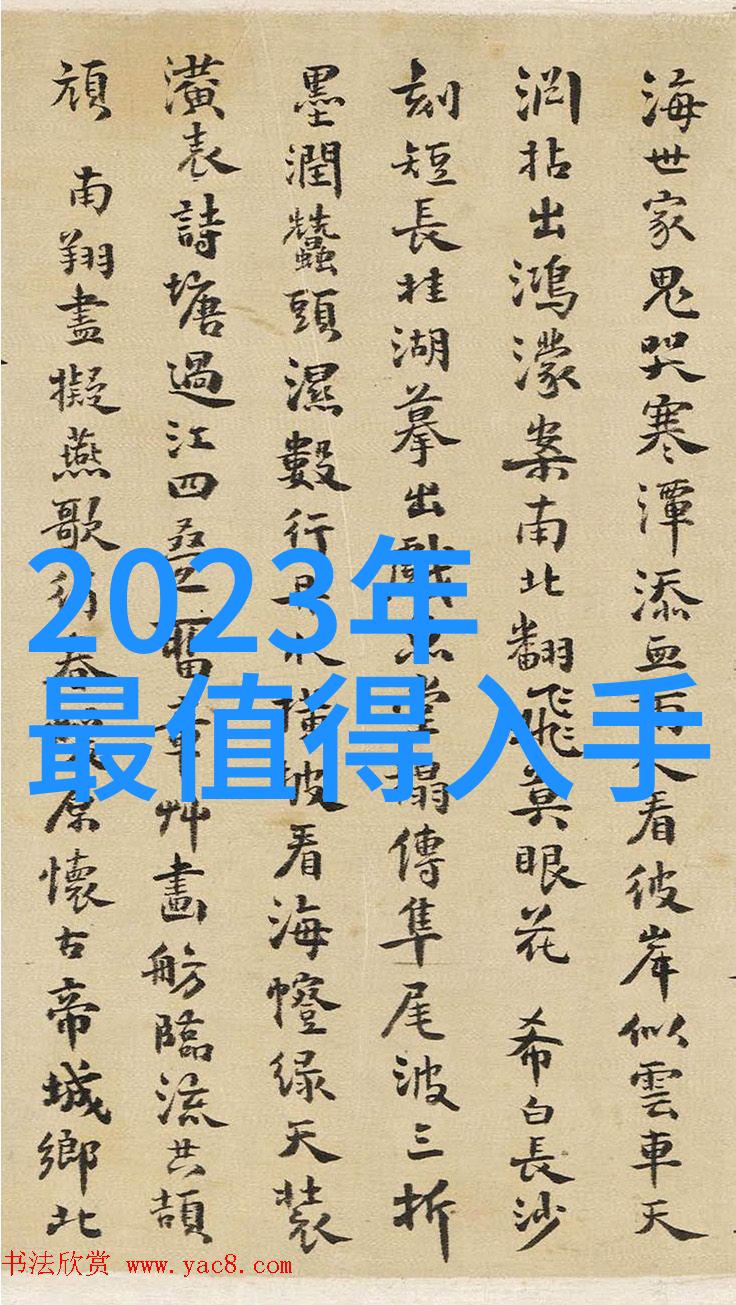 海世家鬼哭寒潭添血看彼岸似雲車天
拈出鴻濛案南北翻飛莫眼花 希白長沙
刻短長桂湖摹出戲堂搨傳隼尾波三折
墨潤蠶頭濕數行橫披看海幢綠天裝
潢表詩塘過江四疊舊章艸畫舫臨流共頡
頏 南翔盡擬燕歌原懷古帝城鄉北
2023年
最值得入手
书法欣赏 www.yac8.com